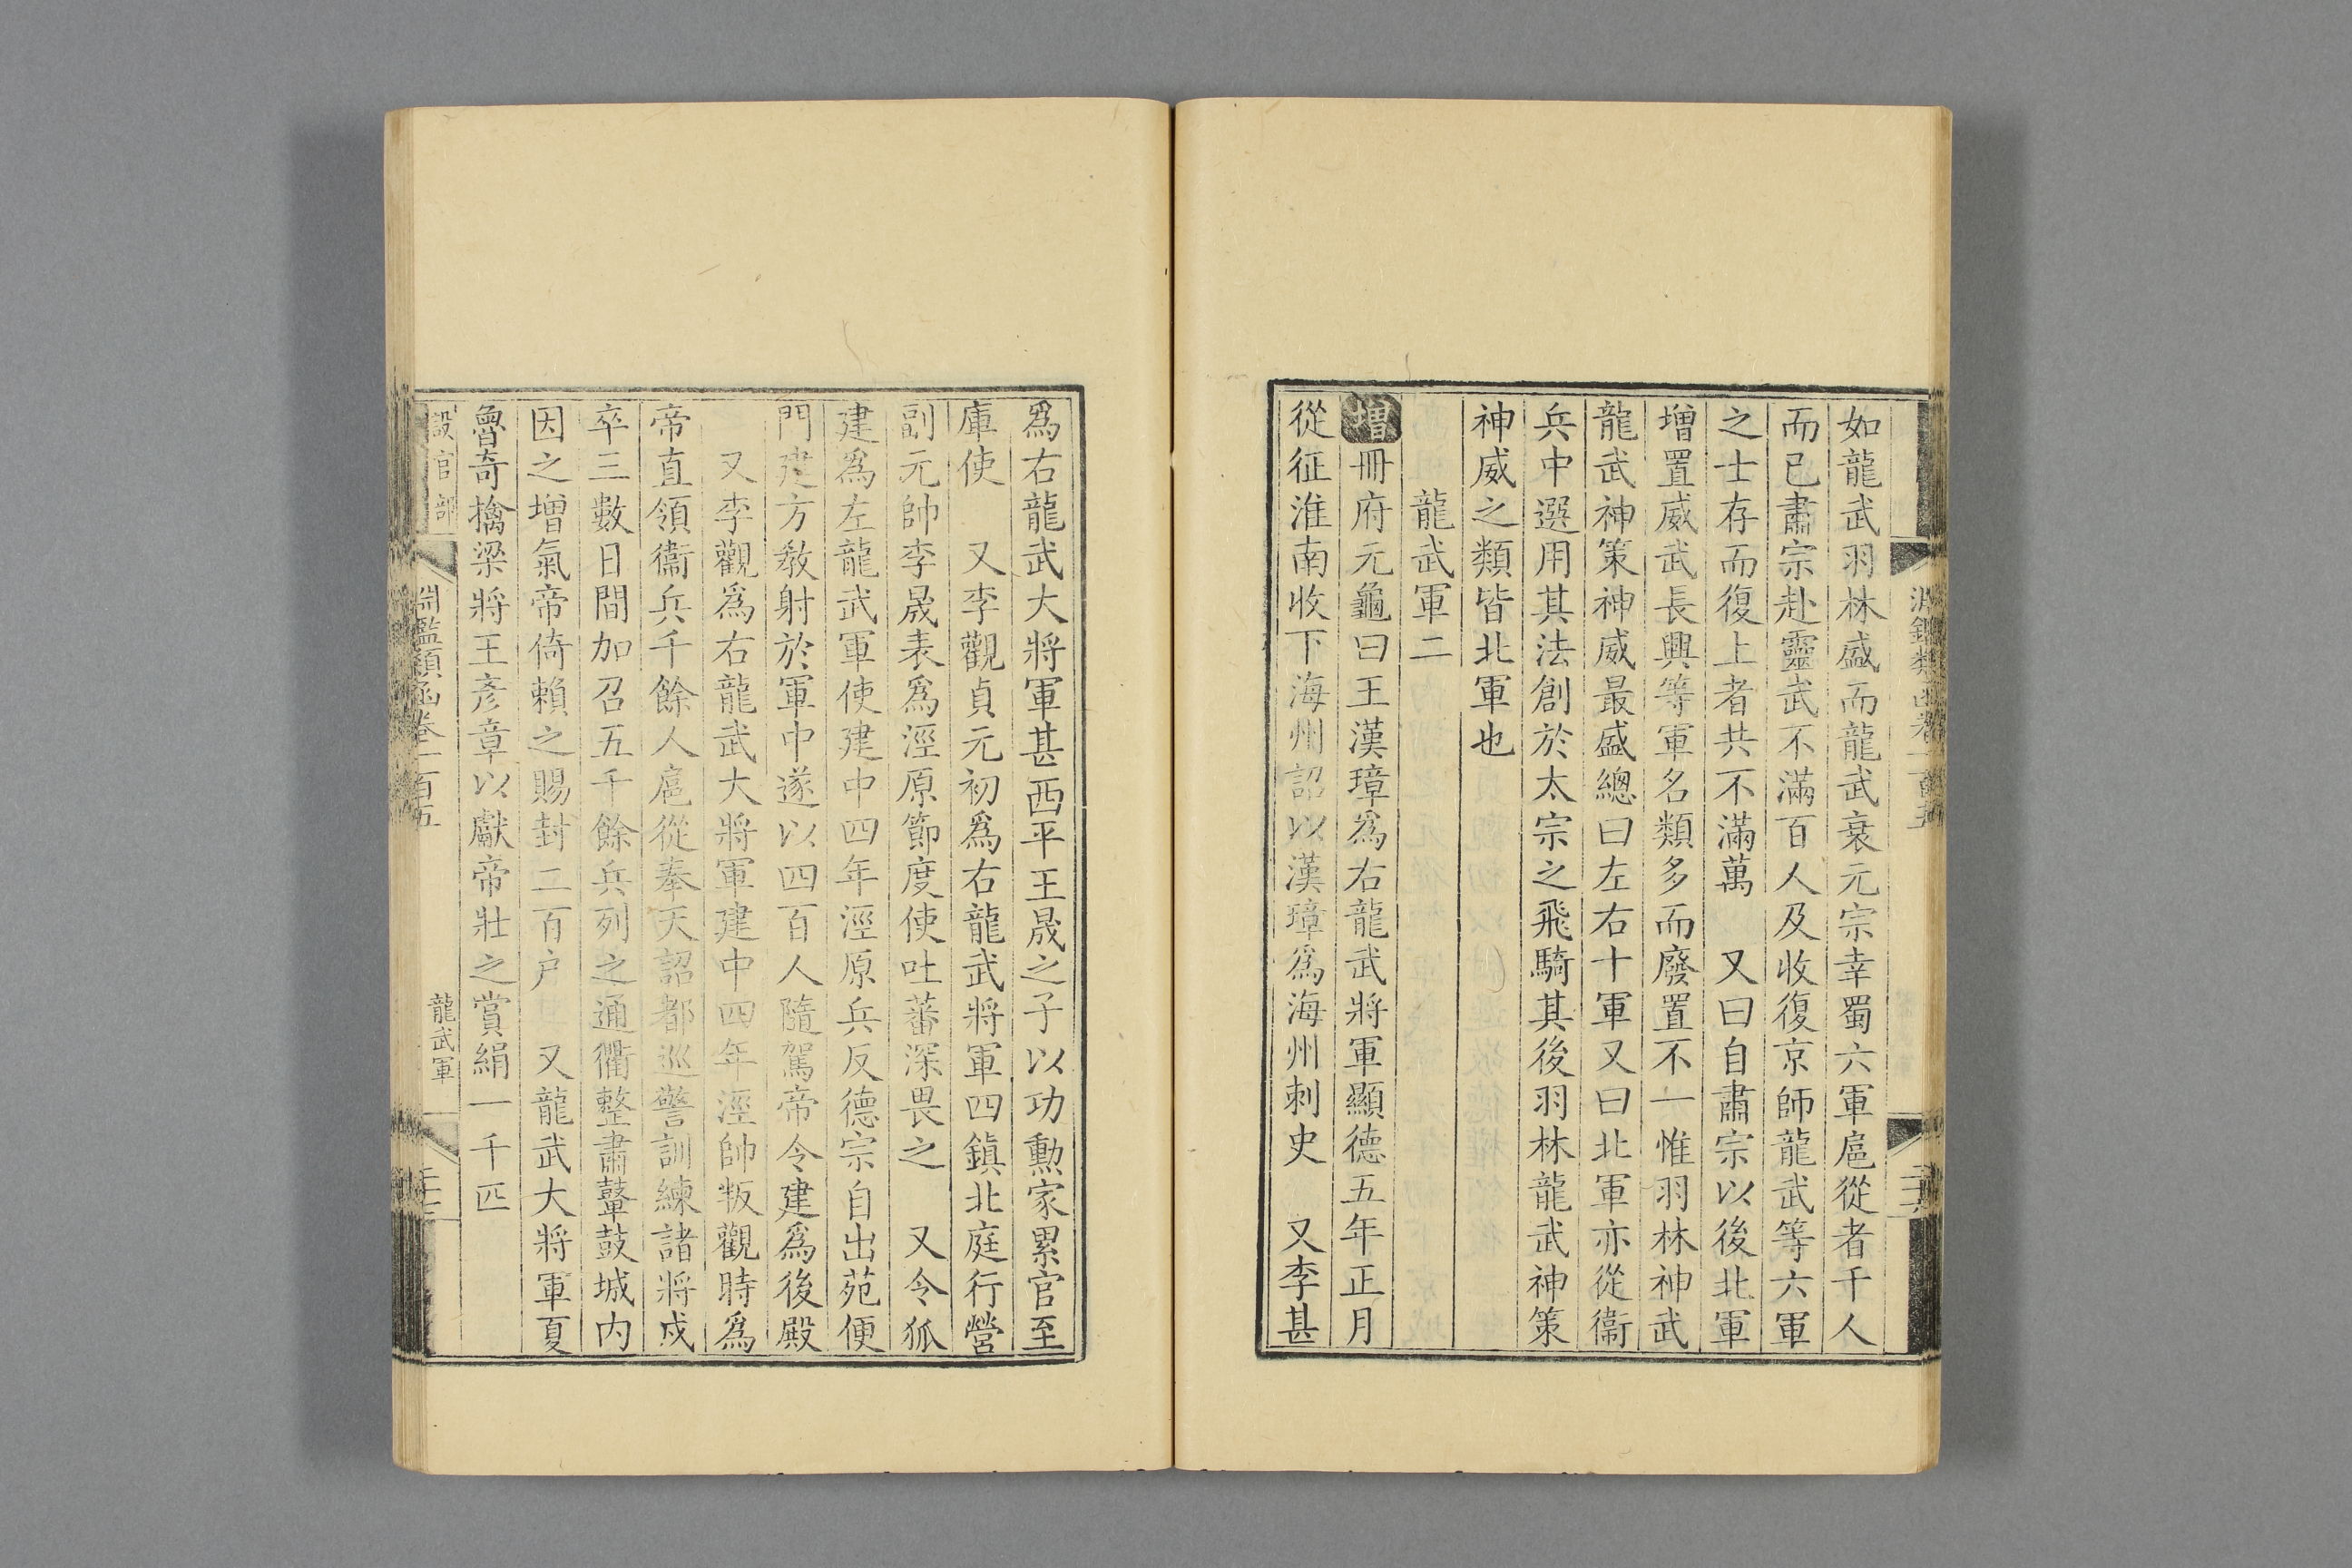 如龍武羽林盛而龍武衰元宗幸蜀六軍扈從者千人
而已肅宗赴靈武不滿百人及收復京師龍武等六軍
之士存而復上者共不滿萬　又曰自肅宗以後北軍
增置威武長興等軍名類多而廢置不一惟羽林神武
龍武神策神威最盛總曰左右十軍又曰北軍亦從衞
兵中選用其法創於太宗之飛騎其後羽林龍武神策
神威之類皆北軍也
龍武軍二
增冊府元龜曰王漢璋爲右龍武將軍顯德五年正月
從征淮南收下海州詔以漢璋爲海州刺史　又李甚
爲右龍武大將軍甚西平王晟之子以功勳家累官至
庫使　又李觀貞元初爲右龍武將軍四鎮北庭行營
副元帥李晟表爲涇原節度使吐蕃深畏之　又令狐
建爲左龍武軍使建中四年涇原兵反德宗自出苑便
門建方教射於軍中遂以四百人隨駕帝令建爲後殿
又李觀爲右龍武大將軍建中四年涇帥叛觀時爲
帝直領衞兵千餘人扈從奉天詔都巡警訓練諸將戍
卒三數日間加召五千餘兵列之通衢整肅鼙鼓城内
因之增氣帝倚賴之賜封二百户　又龍武大將軍夏
魯奇擒梁將王彥章以獻帝壯之賞絹一千匹
設官部
淵鑑類函卷一百五
龍武軍